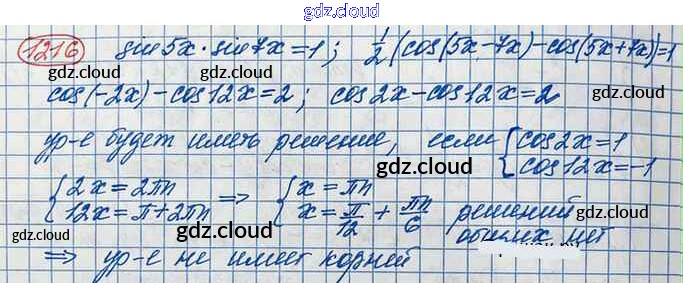 gdz.cloud
1216 sin5x·sin7x=1; 1/2(cos(5x-7x)-cos(5x+7x))=1
gdz.cloud
gdz.cloud
cos(-2x)-cos12x=2; cos2x-cos12x=2
gdz.cloud
ур-е будет иметь решение, если {cos2x=1
cos12x=-1
gdz.cloud
{2x=2πn
12x=π+2πn ⇒ {x=πn
x=π/12+πn/6 решений
общих нет
gdz.cloud
gdz.cloud
gdz.cloud
⇒ ур-е не имеет корней